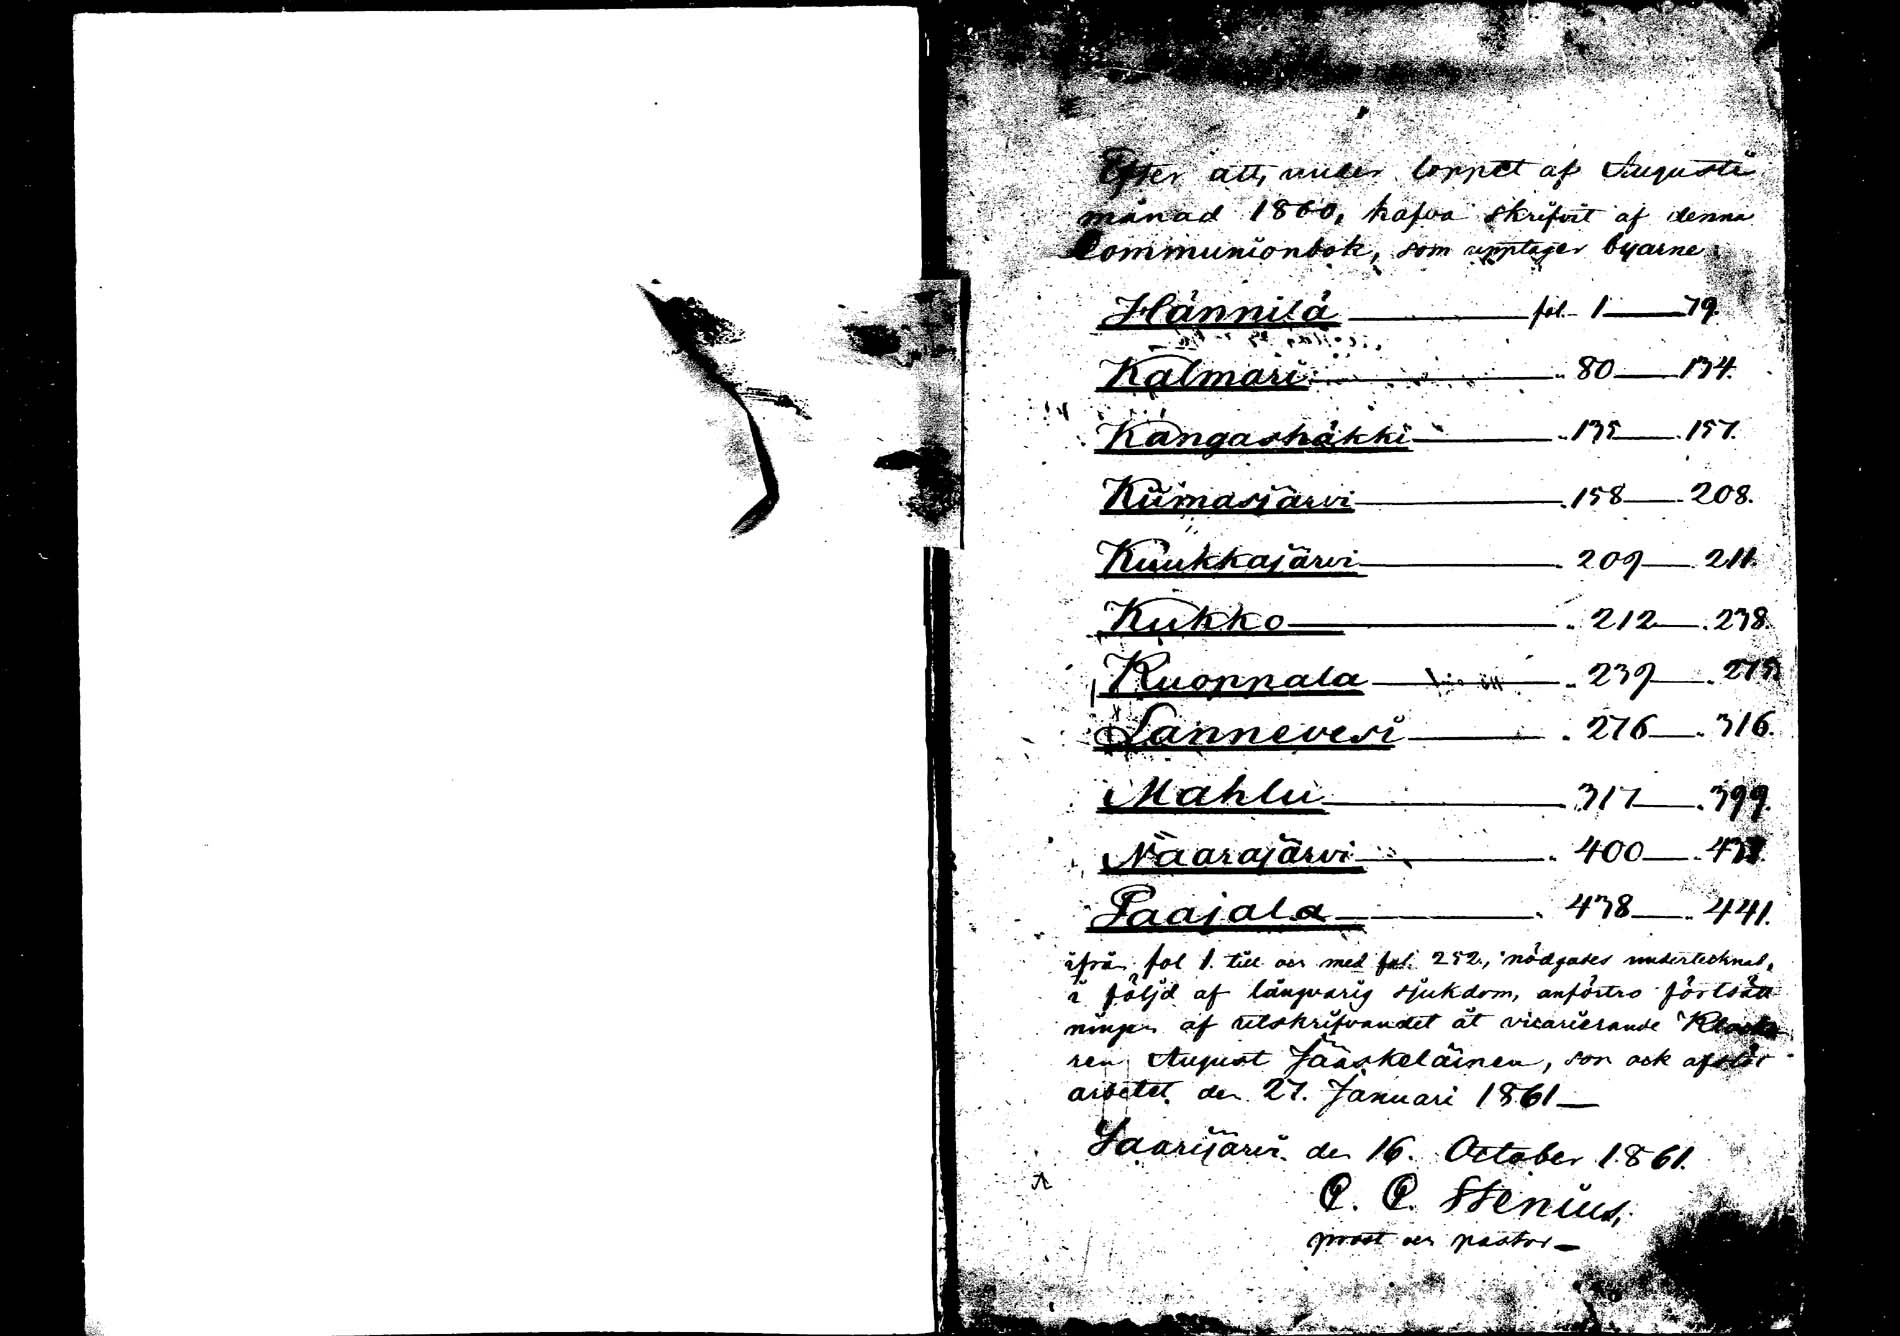 Efter att, under loppet af Augusti
månad 1860, hafva skrifvit af denna
Communionbok, som upptager byarne
Hännilä fol. 1 79.
Kalmari " 80 134.
Kangashäkki " 135 157.
Kiimasjärvi " 158 208.
Kuukkajärvi " 209 211.
Kukko " 212 238.
Kuoppala " 239 275
Lannevesi " 276 316.
Mahlu " 317 399.
Naarajärvi " 400 437.
Paajala " 438 441.
ifrån fol 1. till och med fol. 252., nödgades undertecknad,
i följd af långvarig sjukdom, anförtro fortsätt
ningen af utskrifvandet åt vicarierande Klocka
ren August Jääskeläinen, som ock afslöt
arbetet den 27. Januari 1861
Saarijärvi den 16. October 1861.
C. C. Stenius,
prost och pastor